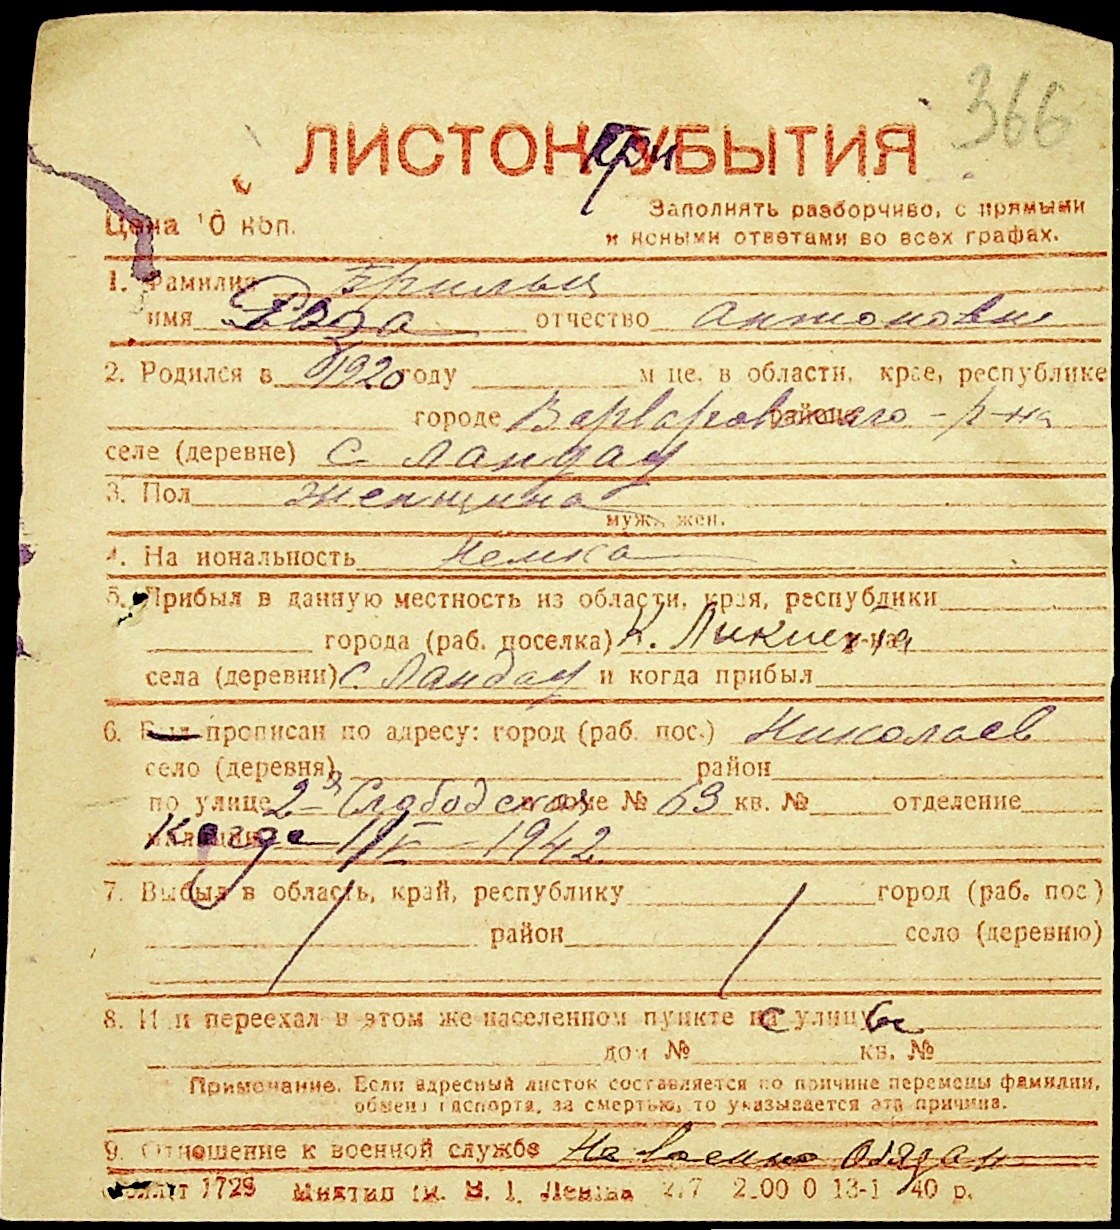 366
ЛИСТОК при УБЫТИЯ
Цена 10 коп.
Заполнять разборчиво, с прямыми
и ясными ответами во всех графах.
1. Фамилия Брильц
имя Роза отчество Антоновн
2. Родился в 1920 году м-це, в области, крае, республике
городе Варваровского р-на района
селе (деревне) с. Ландау
3. Пол женщина
муж., жен.
4. Национальность Немка
5. Прибыл в данную местность из области, края, республики
города (раб. поселка) р-на
села (деревни) с. Ландау и когда прибыл
6. Был прописан по адресу: город (раб. пос.) Николаев
село (деревня) район
по улице 2-я Слободская в доме № 63 кв. № отделение
милиции Когда 1/V – 1942
7. Выбыл в область, край, республику город (раб. пос.)
район село (деревню)
8. Или переехал в этом же населенном пункте с улицы
дом № кв. №
Примечание. Если адресный листок составляется по причине перемены фамилии,
обмена паспорта, за смертью, то указывается эта причина.
9. Отношение к военной службе Не военно обязан
1729 им. В. И. Ленина 2.7 200 0 13-1 40 р.